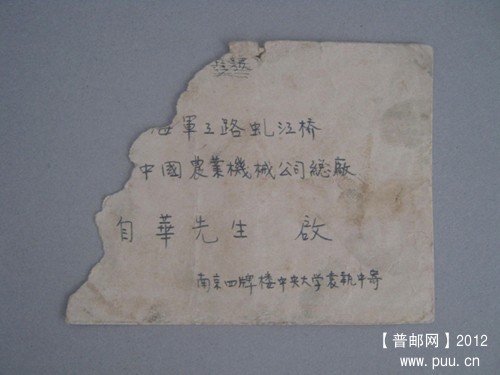 海軍工路虬江橋
中國農業機械公司總廠
自華先生 啟
南京四牌樓中央大学袁執中寄
【普邮网】2012
www.puu.cn